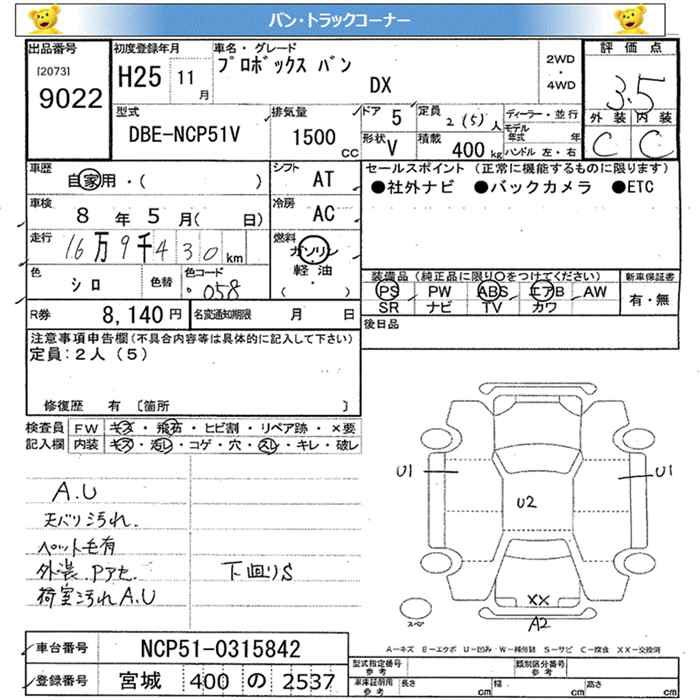 バン・トラックコーナー
出品番号
[2073]
9022
初度登録年月
H25 11 月
車名・グレード
プロボックス バン
DX
2WD
・
4WD
評価点
3.5
外装 内装
C C
型式
DBE-NCP51V
排気量
1500 CC
ドア 5
定員 2 (5) 人
形状 V
積載 400 kg
ディーラー・並行
モデル年式 年
ハンドル 左・右
車歴
自家用・( )
シフト AT
車検
8 年 5 月( 日)
冷房 AC
走行
16万9千430 km
燃料
ガソリン
軽油
( )
色 シロ 色替
色コード 058
R券 8,140円
名変通知期限 月 日
セールスポイント (正常に機能するものに限ります)
●社外ナビ ●バックカメラ ●ETC
装備品 (純正品に限り○をつけてください)
PS PW ABS エアB AW
SR ナビ TV カワ
新車保証書
有・無
後日品
注意事項申告欄(不具合内容等は具体的に記入して下さい)
定員:2人 (5)
修復歴 有 〔箇所 〕
検査員記入欄
FW キズ・飛石・ヒビ割・リペア跡・×要
内装 キズ・汚レ・コゲ・穴・スレ・キレ・破レ
A.U
天バリ汚れ.
ペット毛有
外装.Pアセ.
荷室汚れA.U
下回りS
U1
U1
U2
XX
A2
スペア
A-キズ E-エクボ U-凹み W-補修跡 S-サビ C-腐食 XX-交換済
車台番号 NCP51-0315842
登録番号 宮城 400 の 2537
型式指定番号 参考
類別区分番号 参考
車庫証明用 参考
長さ cm 幅 cm 高さ cm